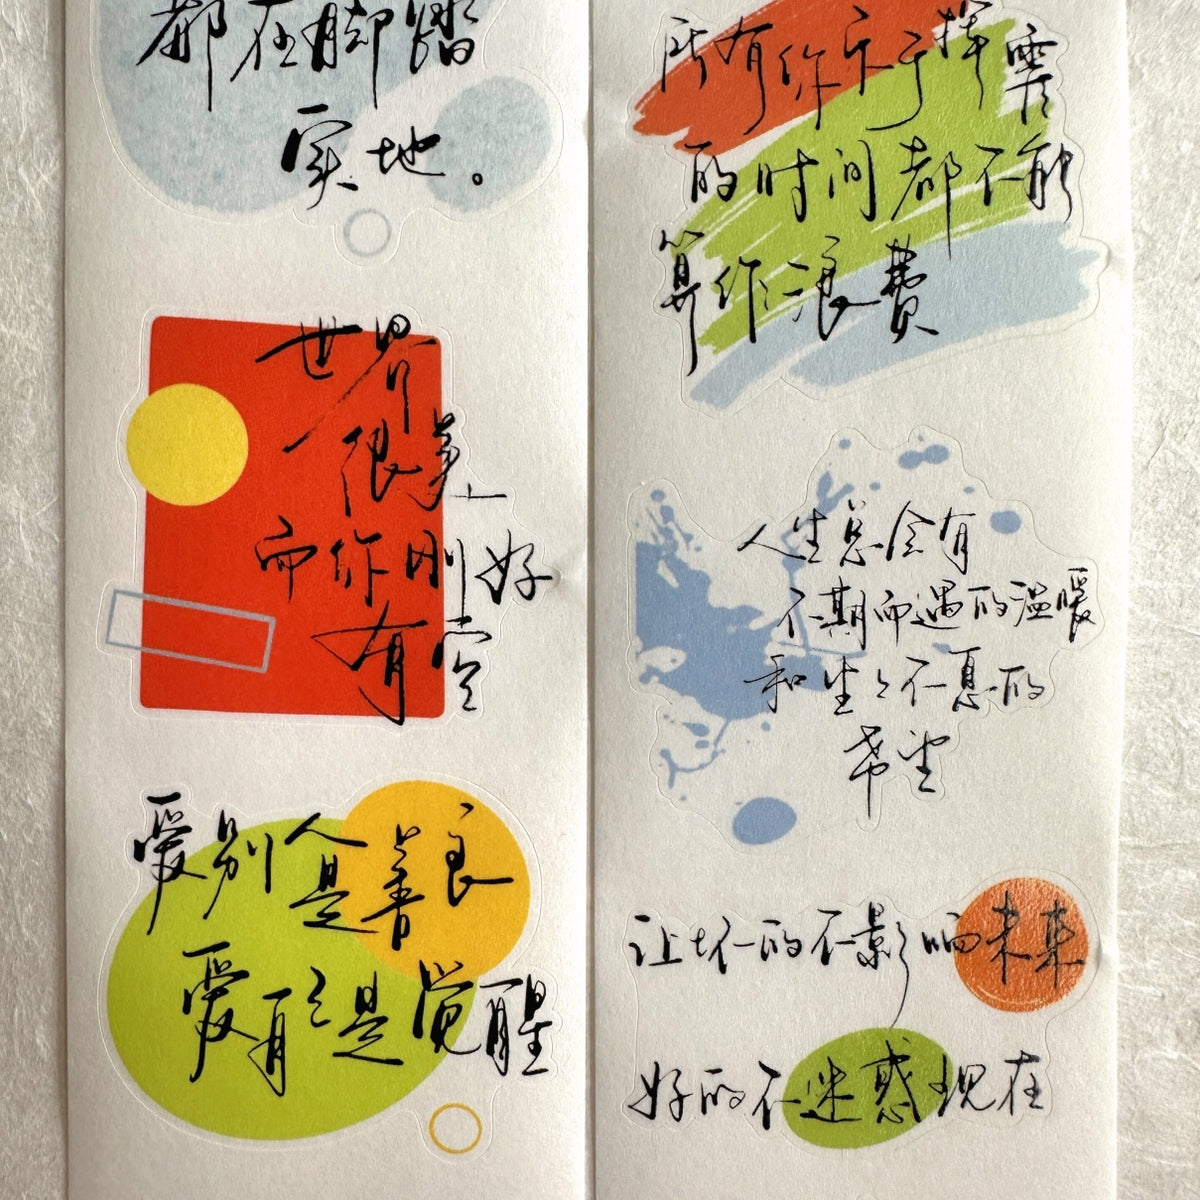 都在脚踏
实地。
世界
很美
而你刚好
有空
爱别人是善良
爱自己是觉醒
所有你乐于挥霍
的时间都不能
算作浪费
人生总会有
不期而遇的温暖
和生生不息的
希望
让坏的不影响未来
好的不迷惑现在